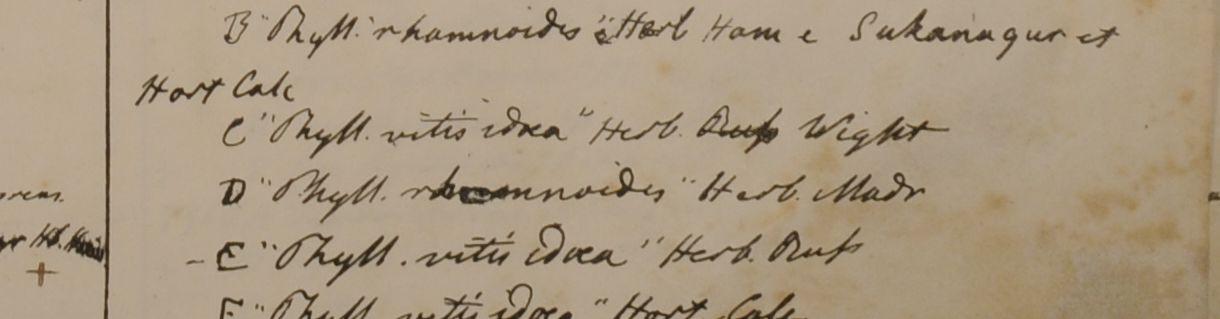 B "Phyll. rhamnoides" Herb Ham e Sukanagur et
Hort Calc
C "Phyll. vitis idæa" Herb. Wight
D "Phyll. rhamnoides" Herb. Madr
prens.
- E "Phyll. vitis idæa" Herb. Russ
F "Phyll. vitis idæa" Hort Calc